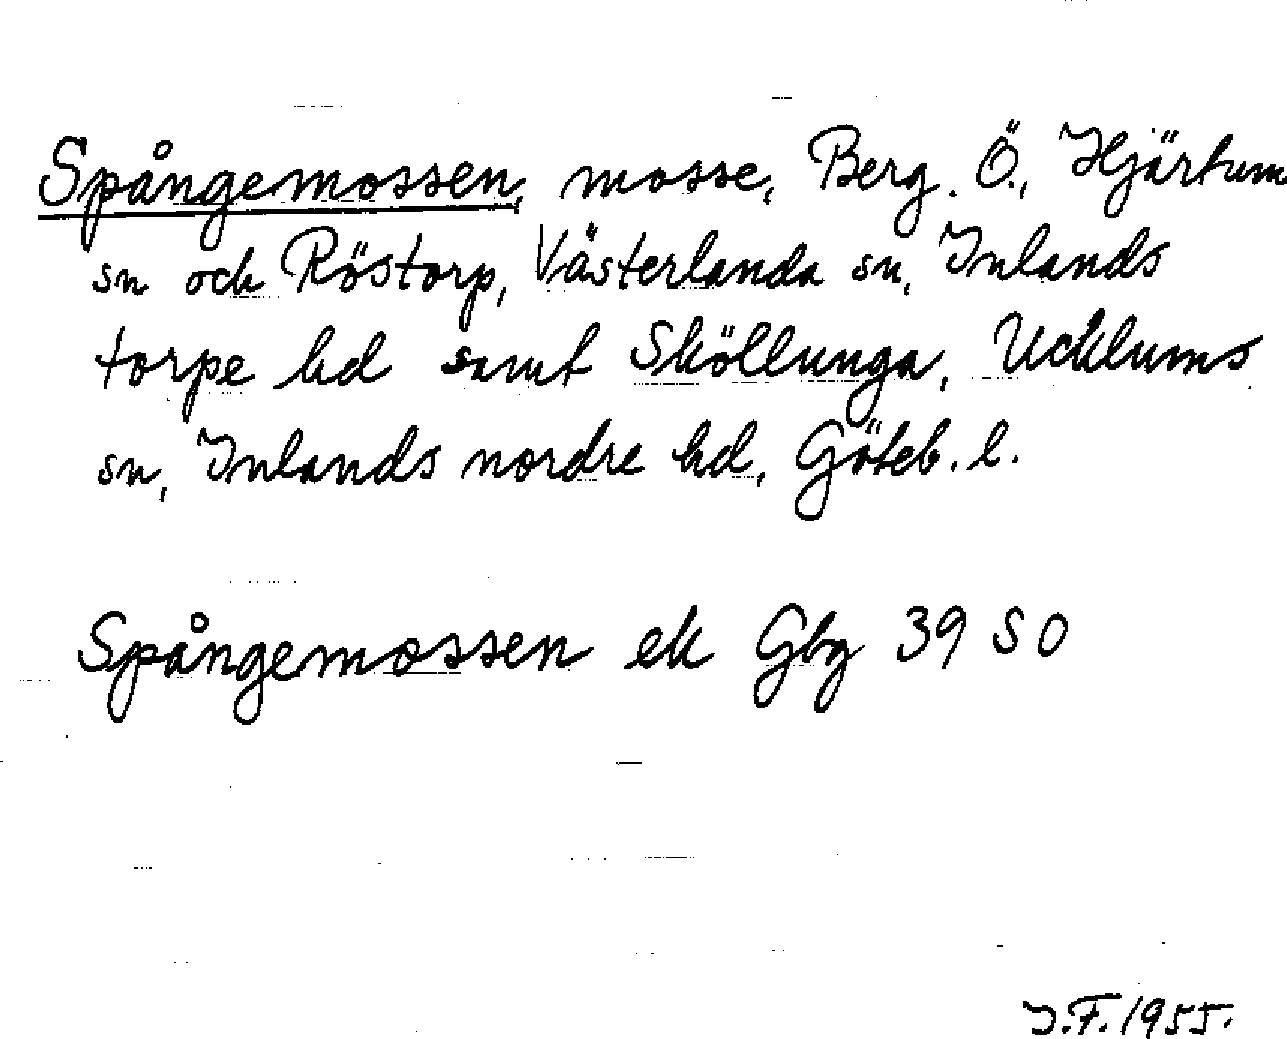 Spångemossen, mosse, Berg. Ö., Hjärtum
sn och Röstorp, Västerlanda sn, Inlands
torpe hd samt Sköllunga, Ucklums
sn, Inlands nordre hd, Göteb. l.
Spångemossen ek Gbg 39 SO
J.F. 1955.